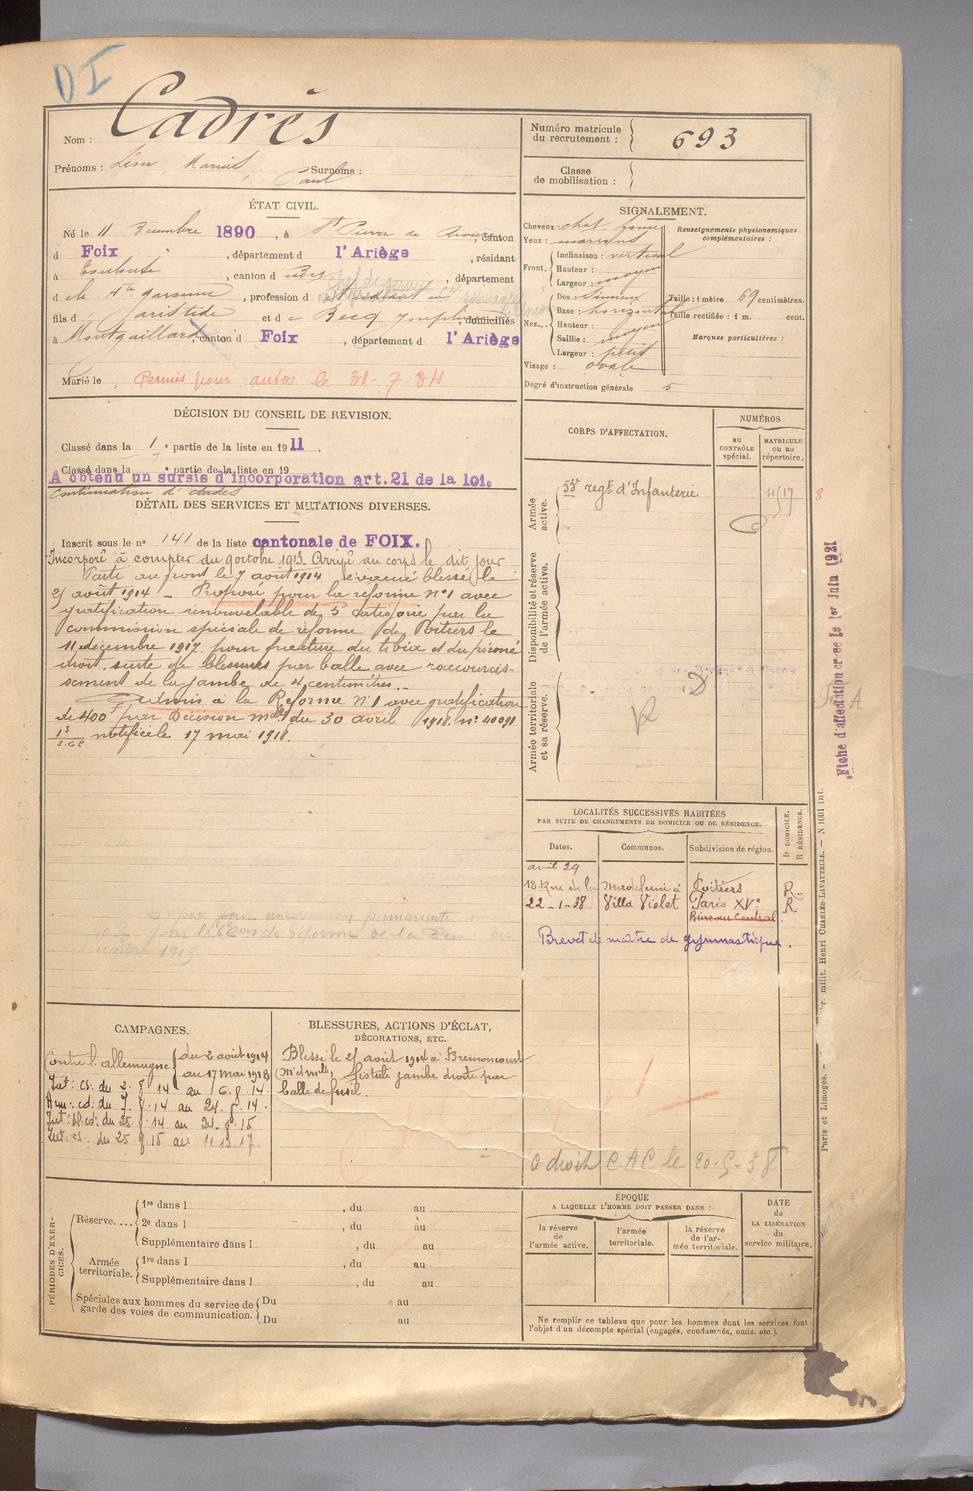 D I
Nom : Cadrès
Prénoms : Léon Marius, Paul Surnoms :
Numéro matricule du recrutement : 693
Classe de mobilisation :
ÉTAT CIVIL.
Né le 11 Décembre 1890, à St Pierre de, canton
d Foix, département d l'Ariège, résidant
à Toulouse, canton d, département
d e la Hte Garonne, profession d
fils d Aristide et d e Becq Josephine, domiciliés
à Montgaillard, canton d Foix, département d l'Ariège
Marié le
Permis pour autos le 31-7-34
SIGNALEMENT.
Cheveux : chat. foncé
Yeux : marrons
Front. Inclinaison : vertical
Hauteur : moyen
Largeur : moyen
Nez.. Dos : Sinueux
Base : horizontal
Hauteur :
Saillie : moyen
Largeur : petit
Visage : ovale
Renseignements physionomiques complémentaires :
Taille : 1 mètre 69 centimètres.
Taille rectifiée : 1 m. cent.
Marques particulières :
Degré d'instruction générale 5
DÉCISION DU CONSEIL DE REVISION.
Classé dans la 1e partie de la liste en 1911.
Classé dans la e partie de la liste en 19
A obtenu un sursis d'incorporation art. 21 de la loi.
Continuation d'études
DÉTAIL DES SERVICES ET MUTATIONS DIVERSES.
Inscrit sous le no 141 de la liste cantonale de FOIX.
Incorporé à compter du 9 octobre 1913. Arrivé au corps le dit jour
Parti au front le 7 août 1914 évacué blessé le
25 août 1914 - Proposé pour la réforme no 1 avec
gratification renouvelable de 5e catégorie par la
commission spéciale de réforme de Poitiers le
11 décembre 1917. pour fracture du tibia et du péroné
droit. suite de blessures par balle avec raccourcis-
sement de la jambe de 4 centimètres.-
Admis à la Réforme No 1 avec gratification
de 400f par Décision mlle du 30 avril 1918. no 40091
notifié le 17 mai 1918.
pour pension permanente
CORPS D'AFFECTATION.
NUMÉROS
au contrôle spécial.
matricule ou au répertoire.
Armée active.
regt d'Infanterie
4517
8
Disponibilité et réserve de l'armée active.
Armée territoriale et sa réserve.
R
D
Fiche d'affectation créée Le 1er Juin 1921
LOCALITÉS SUCCESSIVES HABITÉES
PAR SUITE DE CHANGEMENTS DE DOMICILE OU DE RÉSIDENCE.
D. DOMICILE. R. RÉSIDENCE.
Dates. Communes. Subdivision de région.
avril 29
18. Rue de la Madeleine à Poitiers R.
22-1-38 Villa Violet Paris XVe R
Bureau Central
Brevet de maître de gymnastique.
CAMPAGNES.
Contre l'allemagne du 2 août 1914
au 17 mai 1918
Int: cs. du 2. 8 14 au 6. 8. 14.
Arm: cd: du 7. 8. 14 au 24. 8. 14.
Int: bl. cd: du 25. 8. 14 au 24. 8. 15
Int: cs. du 25. 8. 15 au 11.12.17.
BLESSURES, ACTIONS D'ÉCLAT,
DÉCORATIONS, ETC.
Blessé le 25 août 1914 à Bremoncourt
(M et Mlle) fistule jambe droite par
balle de fusil.
a droit C A C le 20-5-38
PÉRIODES D'EXERCICES.
Réserve.... 1re dans l , du au
2e dans l , du au
Supplémentaire dans l , du au
Armée territoriale. 1re dans l , du au
Supplémentaire dans l , du au
Spéciales aux hommes du service de garde des voies de communication. Du au
Du au
ÉPOQUE
A LAQUELLE L'HOMME DOIT PASSER DANS :
la réserve de l'armée active.
l'armée territoriale.
la réserve de l'armée territoriale.
DATE de LA LIBÉRATION du service militaire.
Ne remplir ce tableau que pour les hommes dont les services font
l'objet d'un décompte spécial (engagés, condamnés, omis, etc.).
Paris et Limoges. — milit. Henri CHARLES-LAVAUZELLE. — N 1001 int.